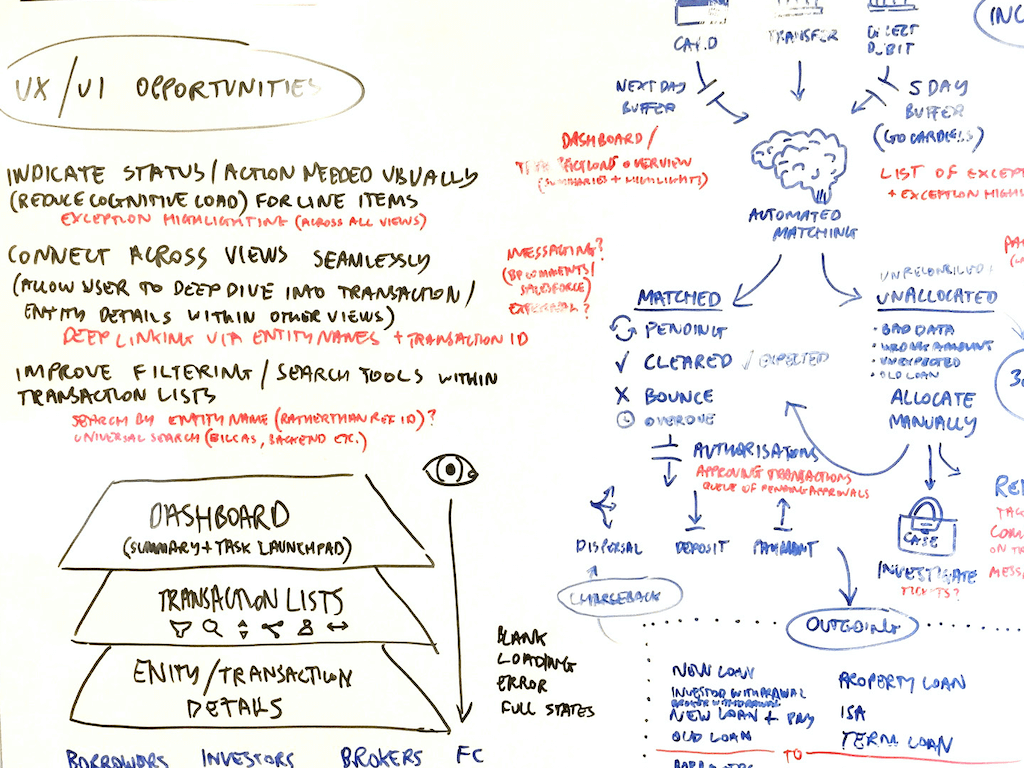 UX/UI OPPORTUNITIES
INDICATE STATUS/ACTION NEEDED VISUALLY
(REDUCE COGNITIVE LOAD) FOR LINE ITEMS
EXCEPTION HIGHLIGHTING (ACROSS ALL VIEWS)
CONNECT ACROSS VIEWS SEAMLESSLY
(ALLOW USER TO DEEP DIVE INTO TRANSACTION/
ENTITY DETAILS WITHIN OTHER VIEWS)
DEEP LINKING VIA ENTITY NAMES + TRANSACTION ID
IMPROVE FILTERING/SEARCH TOOLS WITHIN
TRANSACTION LISTS
SEARCH BY ENTITY NAME (RATHER THAN REF ID)?
UNIVERSAL SEARCH (BILCAS, BACKEND ETC.)
DASHBOARD
(SUMMARY + TASK LAUNCHPAD)
TRANSACTION LISTS
ENITY/TRANSACTION
DETAILS
BORROWERS INVESTORS BROKERS FC
BLANK
LOADING
ERROR
FULL STATES
CARD
TRANSFER
DIRECT
DEBIT
INC
NEXT DAY
BUFFER
5 DAY
BUFFER
(GO CARDLESS)
DASHBOARD/
OVERVIEW
(SUMMARIES + HIGHLIGHTS)
LIST OF EXCEP
+ EXCEPTION HIGHL
AUTOMATED
MATCHING
MESSAGING?
(BP COMMENTS/
SALESFORCE)
EXTERNAL?
MATCHED
PENDING
✓ CLEARED ✓ EXPECTED
X BOUNCE
OVERDUE
UNRECONCILED/
UNALLOCATED
• BAD DATA
• WRONG AMOUNT
• UNEXPECTED
• OLD LOAN
ALLOCATE
MANUALLY
30
AUTHORISATIONS
APPROVING TRANSACTIONS
QUEUE OF PENDING APPROVALS
DISPERSAL
DEPOSIT
PAYMENT
CHARGEBACK
CASE
INVESTIGATE
TICKETS?
RE
TAG
COM
ON TR
MESSA
OUTGOING
NEW LOAN
INVESTOR WITHDRAWAL
BROKER WITHDRAWAL
NEW LOAN + PAY
OLD LOAN
PROPERTY LOAN
ISA
TERM LOAN
TO
BORROWERS